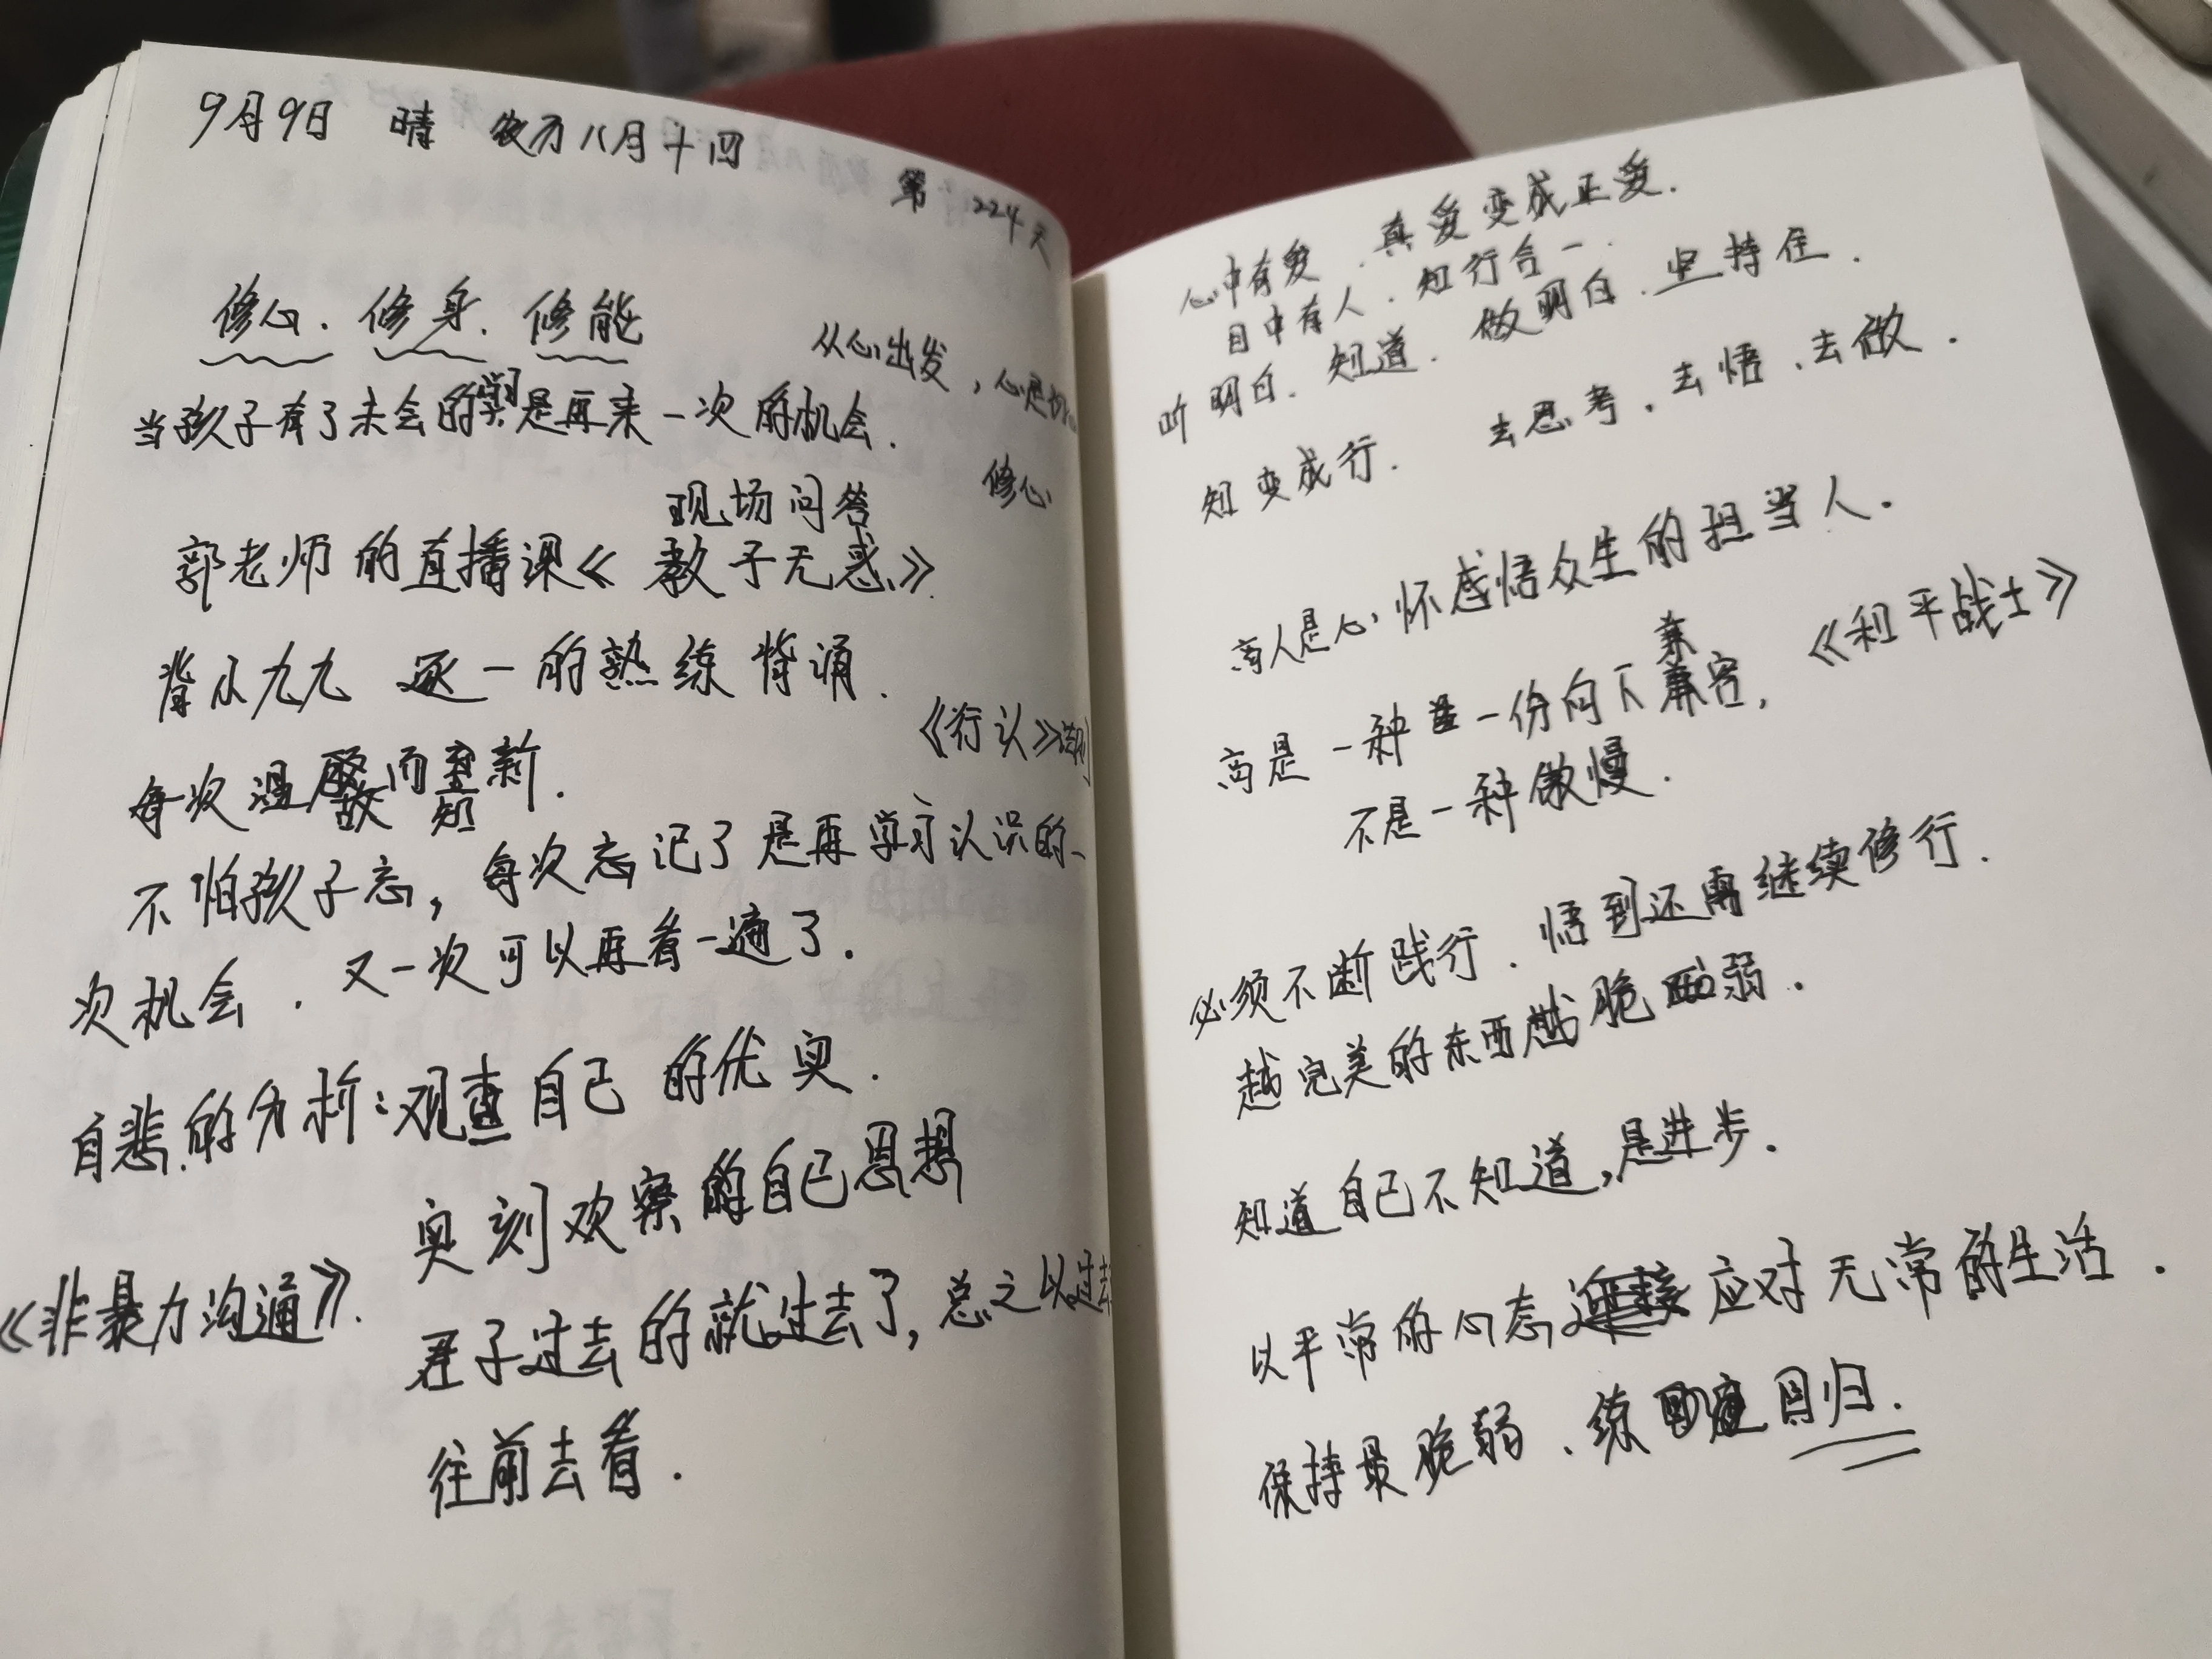 9月9日 晴 农历八月十四
第224天
修心.修身.修能
从心出发,心是
当孩子有了未会的 是再来一次的机会.
修心
现场问答
郭老师的直播课《教子无惑》
背小九九 逐一的熟练背诵.
《行认》
每次温故而知新.
不怕孩子忘,每次忘记了是再学习认识的一
次机会.又一次可以再看一遍了.
自悲的分析:观查自己的优
刻观察的自己思想
《非暴力沟通》.
君子过去的就过去了,总之以过去
往前去看.
心中有爱.真爱变成正爱.
目中有人.知行合一.
听明白.知道.做明白.坚持住.
知变成行. 去思考.去悟.去做.
高人是心怀感悟众生的担当人.
《和平战士》
高是一种 一份向下兼容,
不是一种傲慢.
必须不断践行.悟到还需继续修行.
越完美的东西越脆弱.
知道自己不知道,是进步.
以平常的心态 应对无常的生活.
保持最脆弱.练 回归.